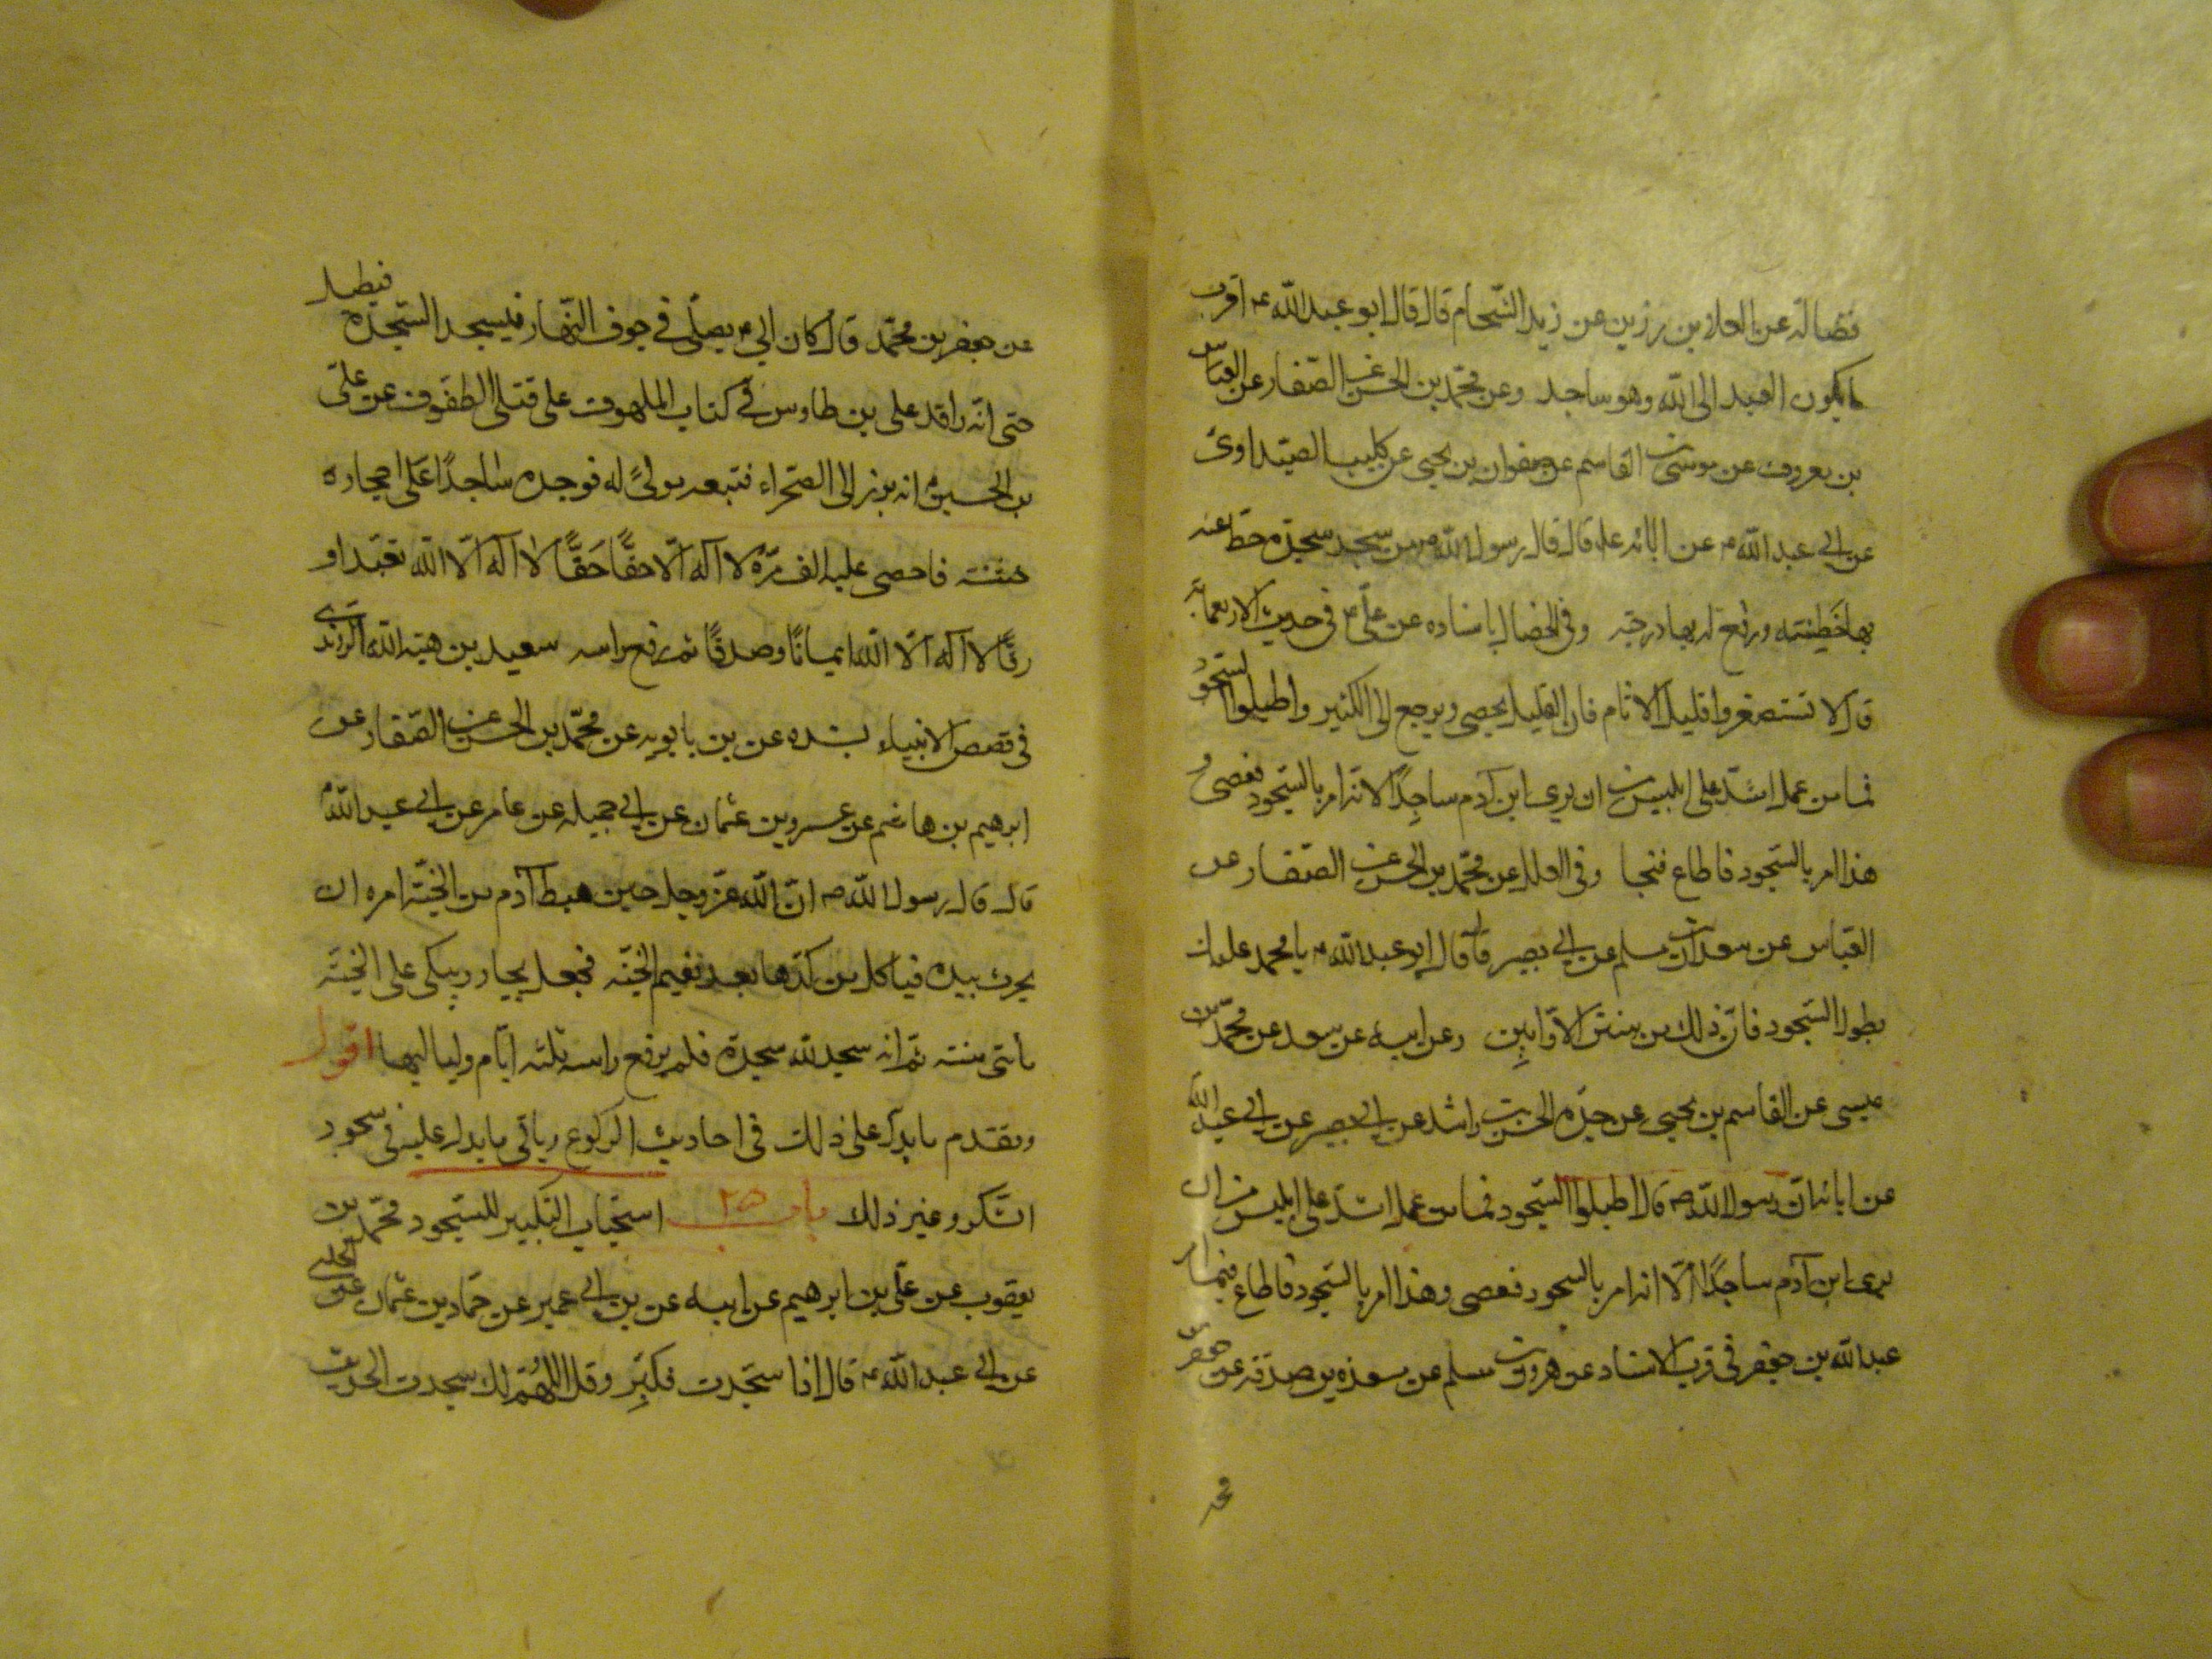 فضالة عن العلا بن رزين عن زيد الشحام قال قال ابو عبد الله ع اقرب
ما يكون العبد الى الله وهو ساجد وعن محمد بن الحسن عن الصفار عن العباس
بن معروف عن موسى بن القاسم عن صفوان بن يحيى عن كليب الصيداوى
عن ابي عبد الله ع عن ابائه ع قال قال رسول الله ص من سجد سجدة حط عنه
بها خطيئته ورفع له بها درجة وفى الخصال باسناده عن على ع فى حديث الاربعمائة
قال لا تستصغروا قليل الاثام فان القليل يحصى ويرجع الى الكثير واطيلوا السجود
فما من عمل اشد على ابليس من ان يرى ابن آدم ساجدًا لانه امر بالسجود فعصى و
هذا امر بالسجود فاطاع فنجا وفى العلل عن محمد بن الحسن عن الصفار عن
العباس عن سعدان بن مسلم عن ابي بصير قال قال ابو عبد الله ع يا محمد عليك
بطول السجود فان ذلك من سنن الاوابين وعن ابيه عن سعد عن محمد بن
عيسى عن القاسم بن يحيى عن جده الحسن بن راشد عن ابي بصير عن ابي عبد الله
عن ابائه ان رسول الله ص قال اطيلوا السجود فما من عمل اشد على ابليس من ان
يرى ابن آدم ساجدًا لانه امر بالسجود فعصى وهذا امر بالسجود فاطاع فنجا
عبد الله بن جعفر فى قرب الاسناد عن هرون بن مسلم عن مسعدة بن صدقة عن جعفر
عن جعفر بن محمد قال كان ابي ع يصلى فى جوف النهار فيسجد السجدة فيطيل
حتى انه راقد على بن طاوس فى كتاب الملهوف على قتلى الطفوف عن على
بن الحسين ع انه برز الى الصحراء فتبعه مولىً له فوجده ساجدًا على حجارة
خشنة فاحصى عليه الف مرة لا اله الا حقًا حقًا لا اله الا الله تعبدا و
رقًا لا اله الا الله ايمانًا وصدقًا ثم رفع راسه سعيد بن هبة الله الراوندى
فى قصص الانبياء بسنده عن بن بابويه عن محمد بن الحسن عن الصفار عن
ابرهيم بن هاشم عن عمرو بن عثمان عن ابي جميلة عن عامر عن ابي عبد الله ع
قال قال رسول الله ص ان الله عز وجل حين هبط آدم من الجنة امره ان
يحرث بيده فياكل من كدها بعد نعيم الجنة فجعل يجار ويبكى على الجنة
مأتى سنة ثم انه سجد لله سجدة فلم يرفع راسه ثلثة ايام ولياليها اقول
وتقدم ما يدل على ذلك فى احاديث الركوع وياتى ما يدل عليه فى سجود
الشكر وغير ذلك باب ٢٥ استحباب التكبير للسجود محمد بن
يعقوب عن على بن ابرهيم عن ابيه عن بن ابي عمير عن حماد بن عثمان عن الحلبى
عن ابي عبد الله ع قال اذا سجدت فكبر وقل اللهم لك سجدت الحديث